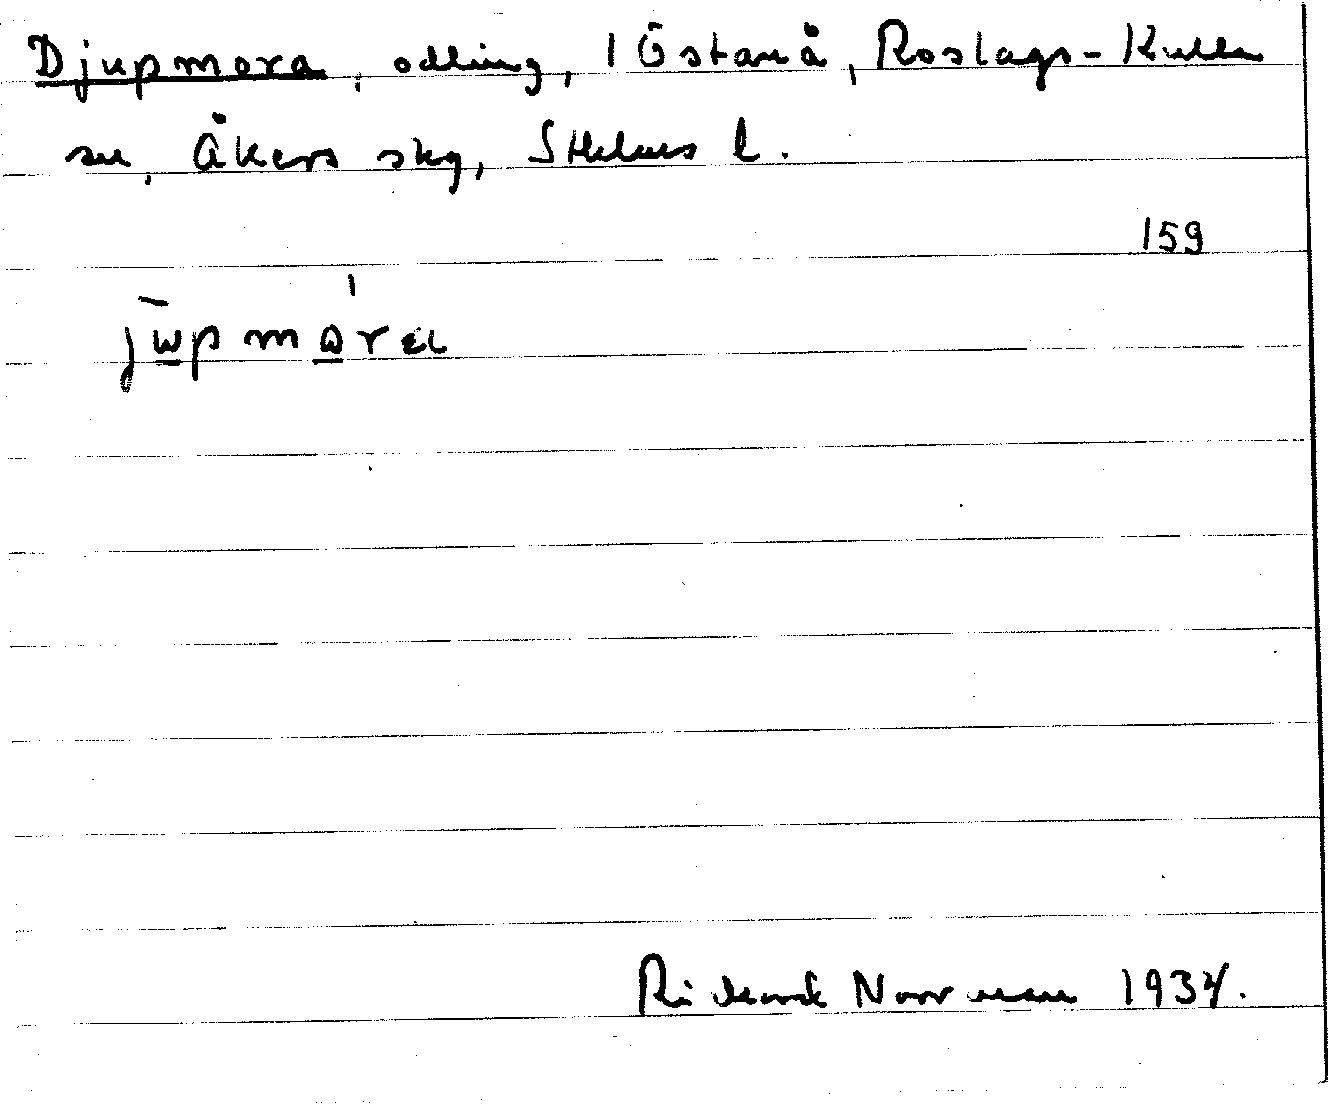 Djupmora, odling, 1 Östanå, Roslags-Kulla
sn, Åkers skg, Sthlms l.
159
Rickard Norrman 1934.